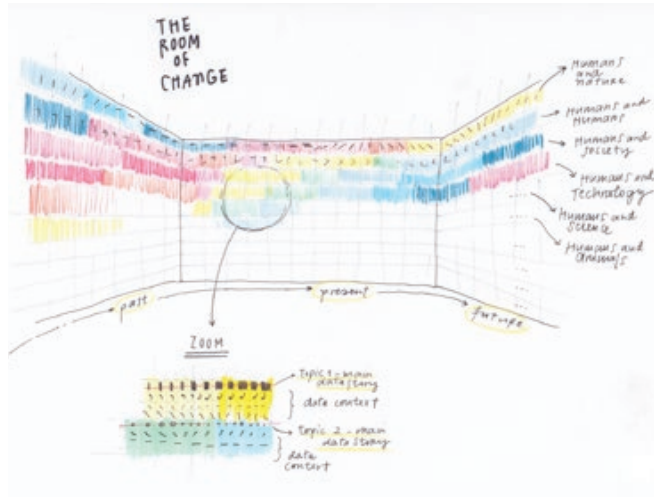 THE
ROOM
OF
CHANGE
Humans
and
nature
Humans and
Humans
Humans and
society
Humans and
Technology
Humans and
Science
Humans and
animals
past
present
future
ZOOM
topic 1 - main
data story
data context
topic 2 - main
data story
data
context